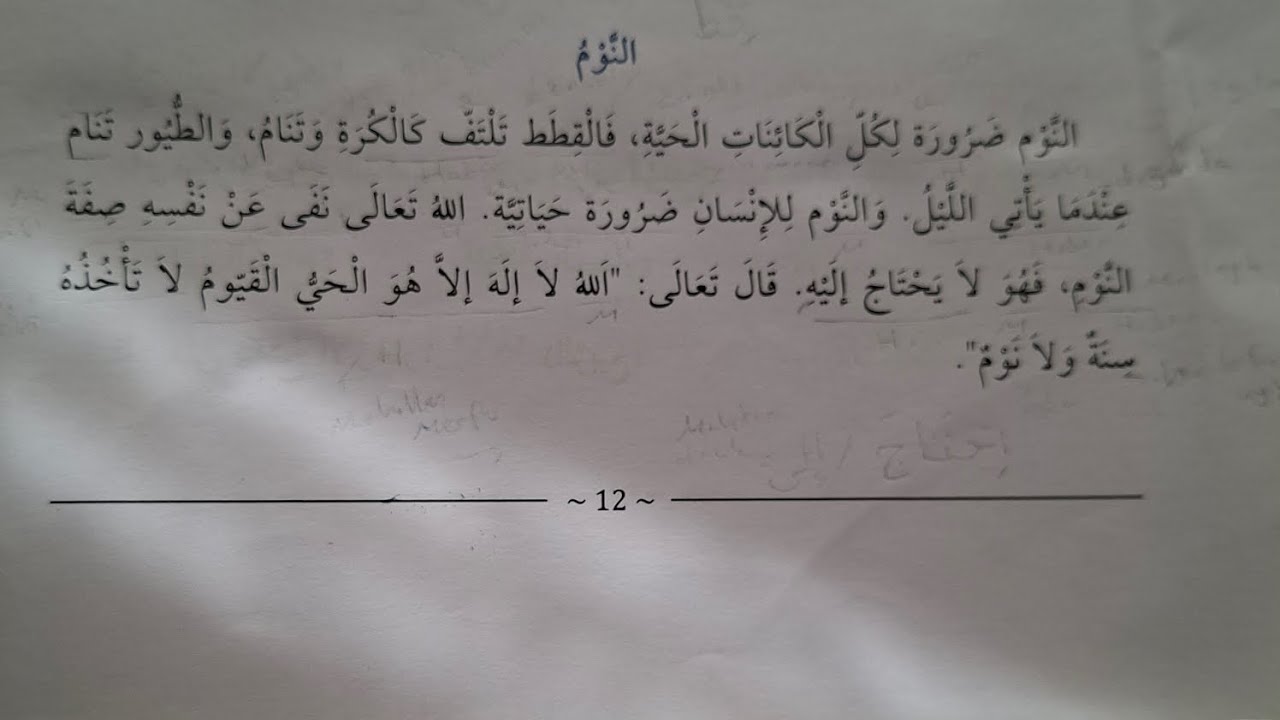 النَّوْمُ
النَّوْم ضَرُورَة لِكُلِّ الْكَائِنَاتِ الْحَيَّةِ، فَالْقِطَط تَلْتَفّ كَالْكُرَةِ وَتَنَامُ، وَالطُّيُور تَنَام
عِنْدَمَا يَأْتي اللَّيْلُ. وَالنَّوْم لِلإِنْسَانِ ضَرُورَة حَيَاتِيَّة. اللهُ تَعَالَى نَفَى عَنْ نَفْسِهِ صِفَةَ
النَّوْمِ، فَهُوَ لاَ يَحْتَاجُ إلَيْهِ. قَالَ تَعَالَى: "اَللهُ لاَ إلَهَ إلاَّ هُوَ الْحَيُّ الْقَيّومُ لاَ تَأْخُذُهُ
سِنَةٌ وَلاَ نَوْمٌ".
إحتاج / إلى
~ 12 ~